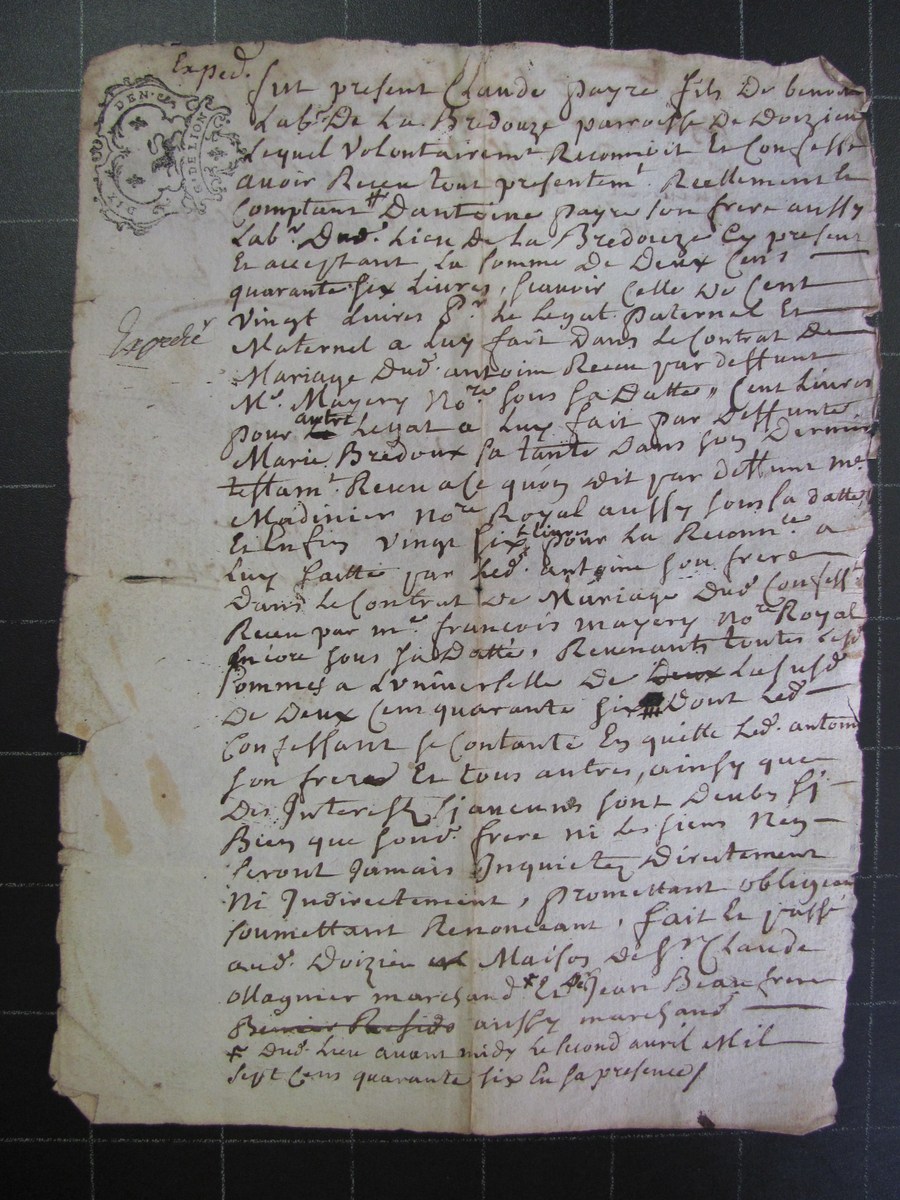 Exped.
DEN. ces
G. DE LION
Fut present Claude payre fils De benoit
Labr. De La Bredouze parroisse De Doizieu
Lequel Volontairemt. Reconnoit Et Confesse
avoir Receu tout presentemt. Reellement Et
Comptant Dantoine payre son frere aussy
Labr. Dud. Lieu De La Bredouze Cy present
Et acceptant La somme De Deux Cens
quarante six Livres, scavoir Celle De Cent
Vingt Livres Pr. Le Legat paternel Et
Expedié
Maternel a Luy fait Dans Le Contrat De
Mariage Dud. antoine Receu par deffunt
Me. Mayery Nore. sous sa Datte, Cent Livres
pour autre Legat a Luy fait par Deffunte
Marie Bredoux sa tante Dans son Dernier
testamt. Receu a Ce quon dit par deffunt me.
Madinier Nore. Royal aussy sous sa datte
Et Enfin Vingt six livres pour La Reconnce. a
Luy faitte par Led. antoine son frere
Dans Le Contrat De Mariage Dud. Confesst.
Receu par me. francois mayery Nore. Royal
Encore sous sa Datte, Revenants toutes Lesd.
sommes a Luniverselle De Deux La susd.
De Deux Cens quarante six Dont Led.
Confessant se Contante En quitte Led. antoine
son frere Et tous autres, ainsy que
Des Interests sj aucuns sont Deubs sj
Bien que sond. frere ni Les siens Nen
seront Jamais Inquietez Directement
Ni Indirectement, promettant obligeant
soumettant Renonceant, fait Et passé
aud. Doizieu Maison De sr. Claude
ollagnier marchand * Et De Jean Beau frere
aussy marchand
* Dud. Lieu avant midy Le second avril Mil
sept Cens quarante six En sa presence